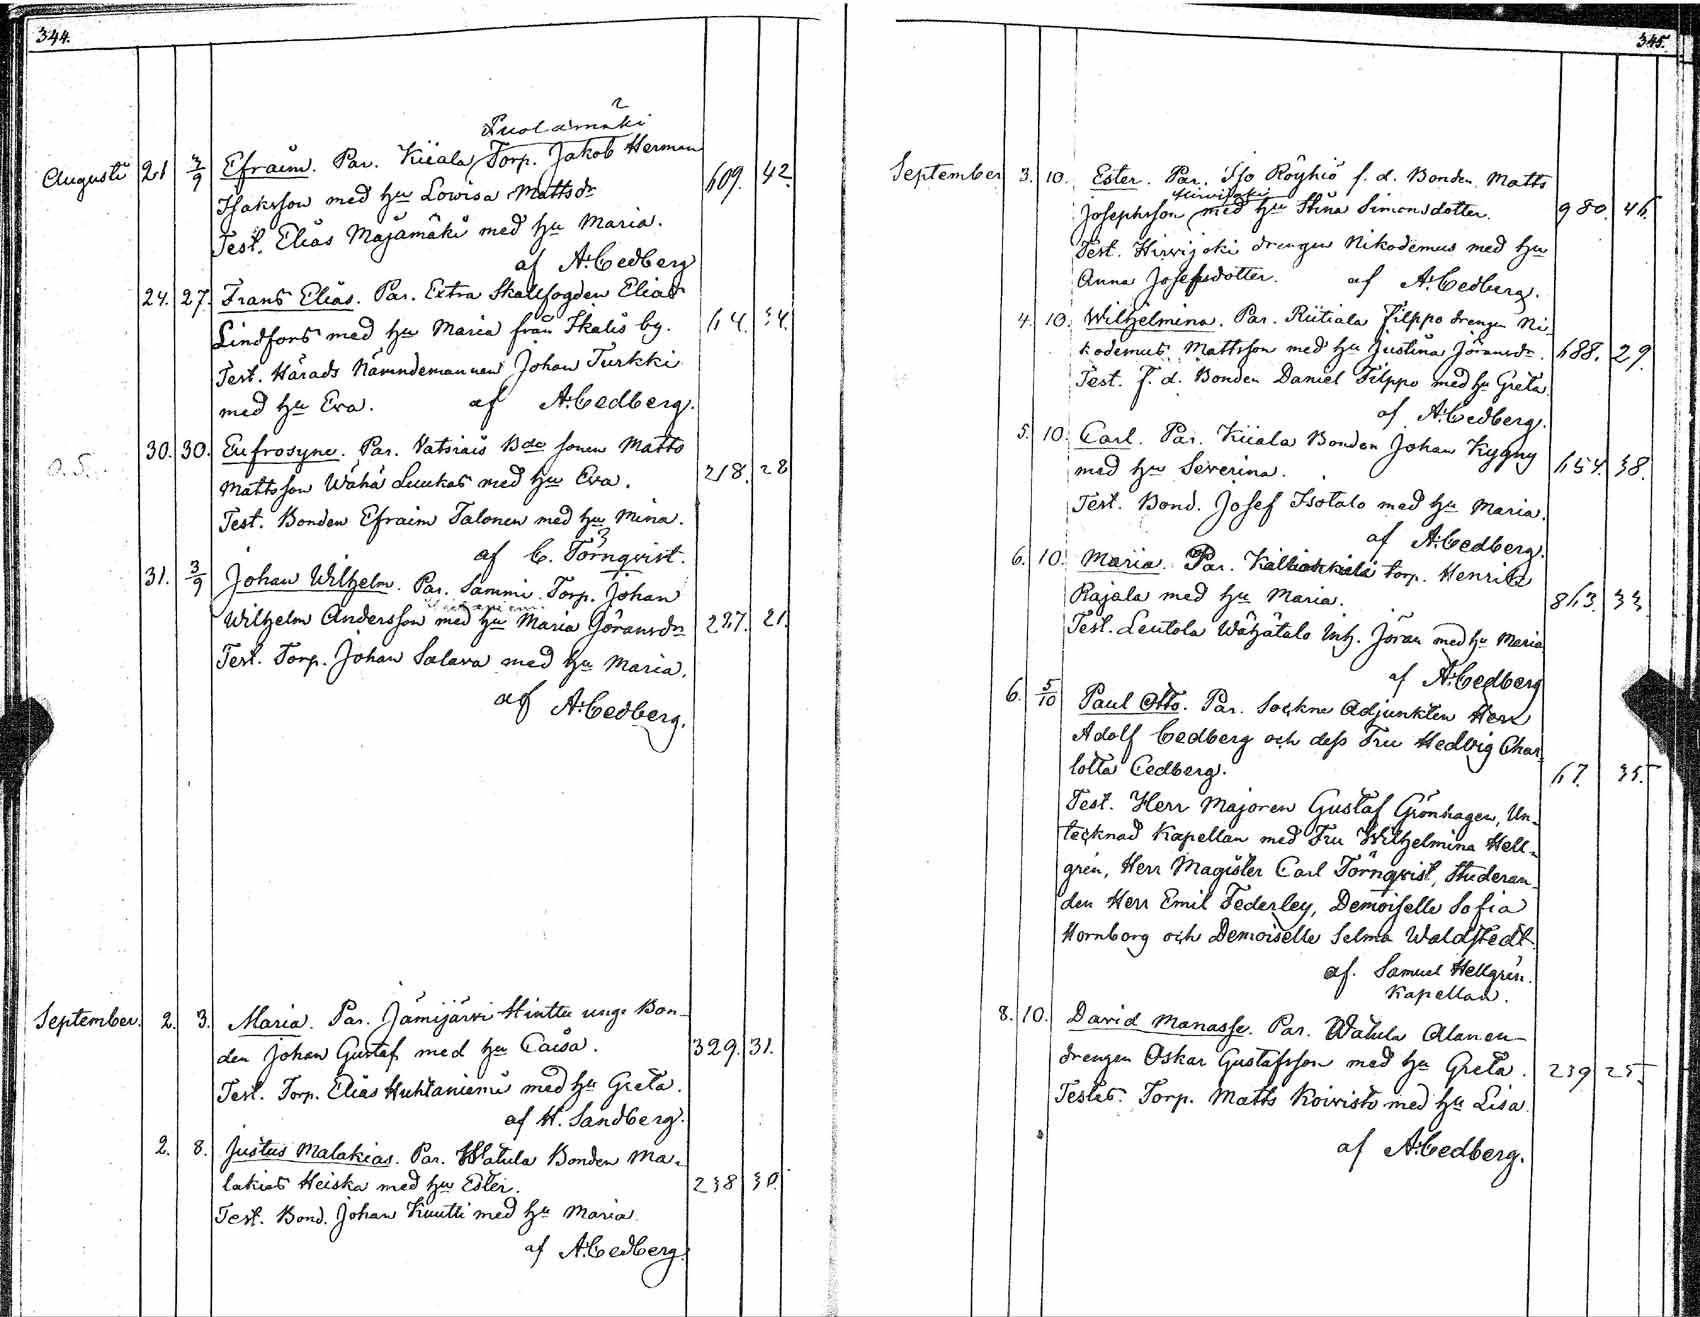 344.
Puolamäki
Augusti 21 3/9 Efraim. Par. Kiiala Torp. Jakob Herman 609. 42.
Isaksson med hu Lowisa Mattsdr
Test. Elias Majamäki med hu Maria.
af A. Cedberg
24. 27. Frans Elias. Par. Extra Skallfogden Elias
Lindfors med hu Maria från Ikalis by. 64. 34.
Test. Härads Nämndemannen Johan Turkki
med hu Eva. af A. Cedberg.
30. 30. Eufrosyne. Par. Vatsiais Bde sonen Matts
Mattsson Wähä Luukas med hu Eva. 218. 28
Test. Bonden Efraim Talonen med hu Mina.
af C. Törnqvist.
31. 3/9 Johan Wilhelm. Par. Sammi Torp. Johan
Wilhelm Andersson med hu Maria Göransdr 227. 21.
Test. Torp. Johan Salava med hu Maria.
af A. Cedberg.
September. 2. 3. Maria. Par. Jämijärvi Hinttu unge Bon-
den Johan Gustaf med hu Caisa. 329. 31.
Test. Torp. Elias Huhtaniemi med hu Greta.
af H. Sandberg.
2. 8. Justus Malakias. Par. Watula Bonden Ma-
lakias Heiska med hu Ester. 238 30.
Test. Bond. Johan Kuutti med hu Maria
af A. Cedberg.
345.
September 3. 10. Ester. Par. Iso Röyhiö f. d. Bonden Matts
Josephsson med hu Stina Simonsdotter. 980. 46.
Test. Hirvijoki drengen Nikodemus med hu
Anna Josefsdotter. af A. Cedberg.
4. 10. Wilhelmina. Par. Riitiala Filppo drengen Ni-
kodemus Mattsson med hu Justina Jöransdr. 688. 29.
Test. F. d. Bonden Daniel Filppo med hu Greta
af A. Cedberg.
5. 10. Carl. Par. Kiiala Bonden Johan Kyyny
med hu Severina. 654. 38.
Test. Bond. Josef Isotalo med hu Maria.
af A. Cedberg.
6. 10. Maria. Par. Kallionkielä torp. Henrik
Rajala med hu Maria. 863. 33.
Test. Leutola Wähätalo Inh. Jöran med hu Maria
af A. Cedberg
6. 5/10 Paul Otto. Par. Sockne Adjunkten Herr
Adolf Cedberg och dess Fru Hedvig Char-
lotta Cedberg. 67. 35.
Test. Herr Majoren Gustaf Grönhagen, Un-
tecknad Kapellan med Fru Wilhelmina Hell-
grén, Herr Magister Carl Törnqvist, Studeran-
den Herr Emil Federley, Demoiselle Sofia
Hornborg och Demoiselle Selma Waldstedt.
af. Samuel Hellgrén.
Kapellan.
8. 10. David Manasse. Par. Watula Alanen-
drengen Oskar Gustafsson med hu Greta. 239 25.
Testes. Torp. Matts Koivisto med hu Lisa.
af A. Cedberg.